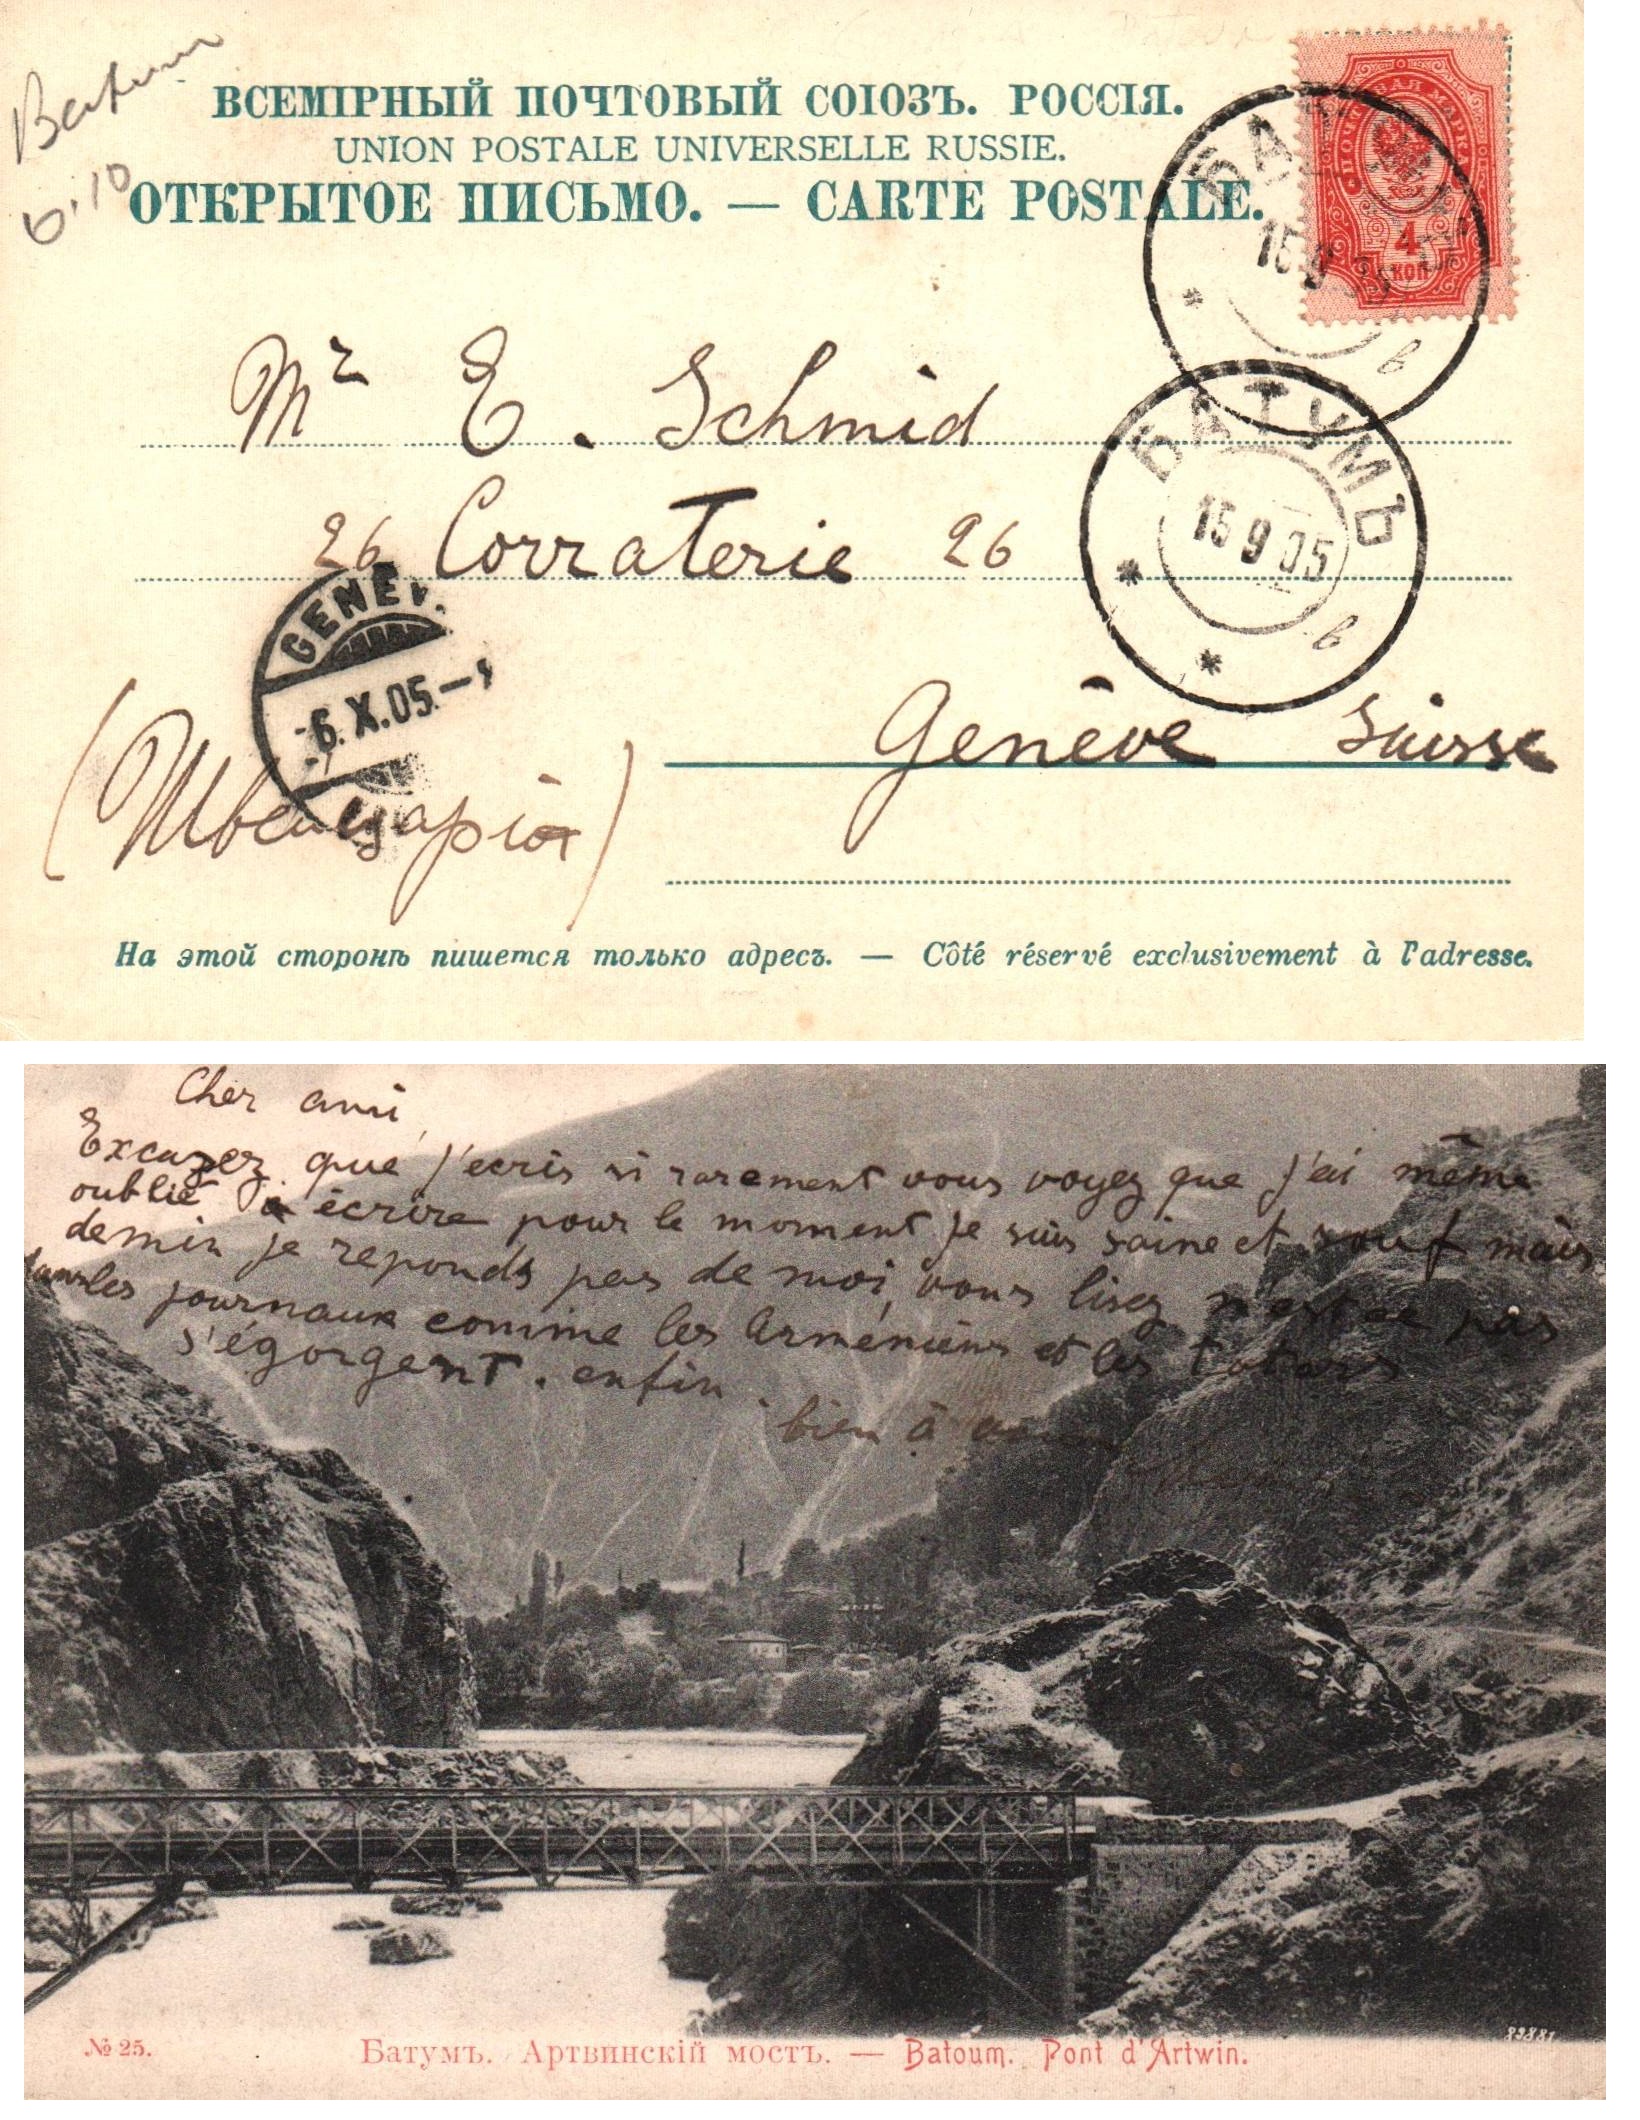 Batum
6.10
ВСЕМІРНЫЙ ПОЧТОВЫЙ СОЮЗЪ. РОССІЯ.
UNION POSTALE UNIVERSELLE RUSSIE.
ОТКРЫТОЕ ПИСЬМО. — CARTE POSTALE.
ПОЧТОВАЯ МАРКА
4
КОП
15 9 05
в
Mr E. Schmid
БАТУМЪ
15 9 05
в
26 Corraterie 26
GENEV
-6.X.05.-
Genève Suisse
(Швейцарія)
На этой сторонѣ пишется только адресъ. — Côté réservé exclusivement à l'adresse.
Cher ami,
Excuzez que j'ecris si rarement vous voyez que j'ai même
oublié à écrire pour le moment je suis saine et souf mais
demin je reponds pas de moi, vous lisez n'est ce pas
dans les journaux comme les Arméniens et les tatars
s'égorgent. enfin.
bien à vous
82881
№ 25. Батумъ. Артвинскій мостъ. — Batoum. Pont d'Artwin.